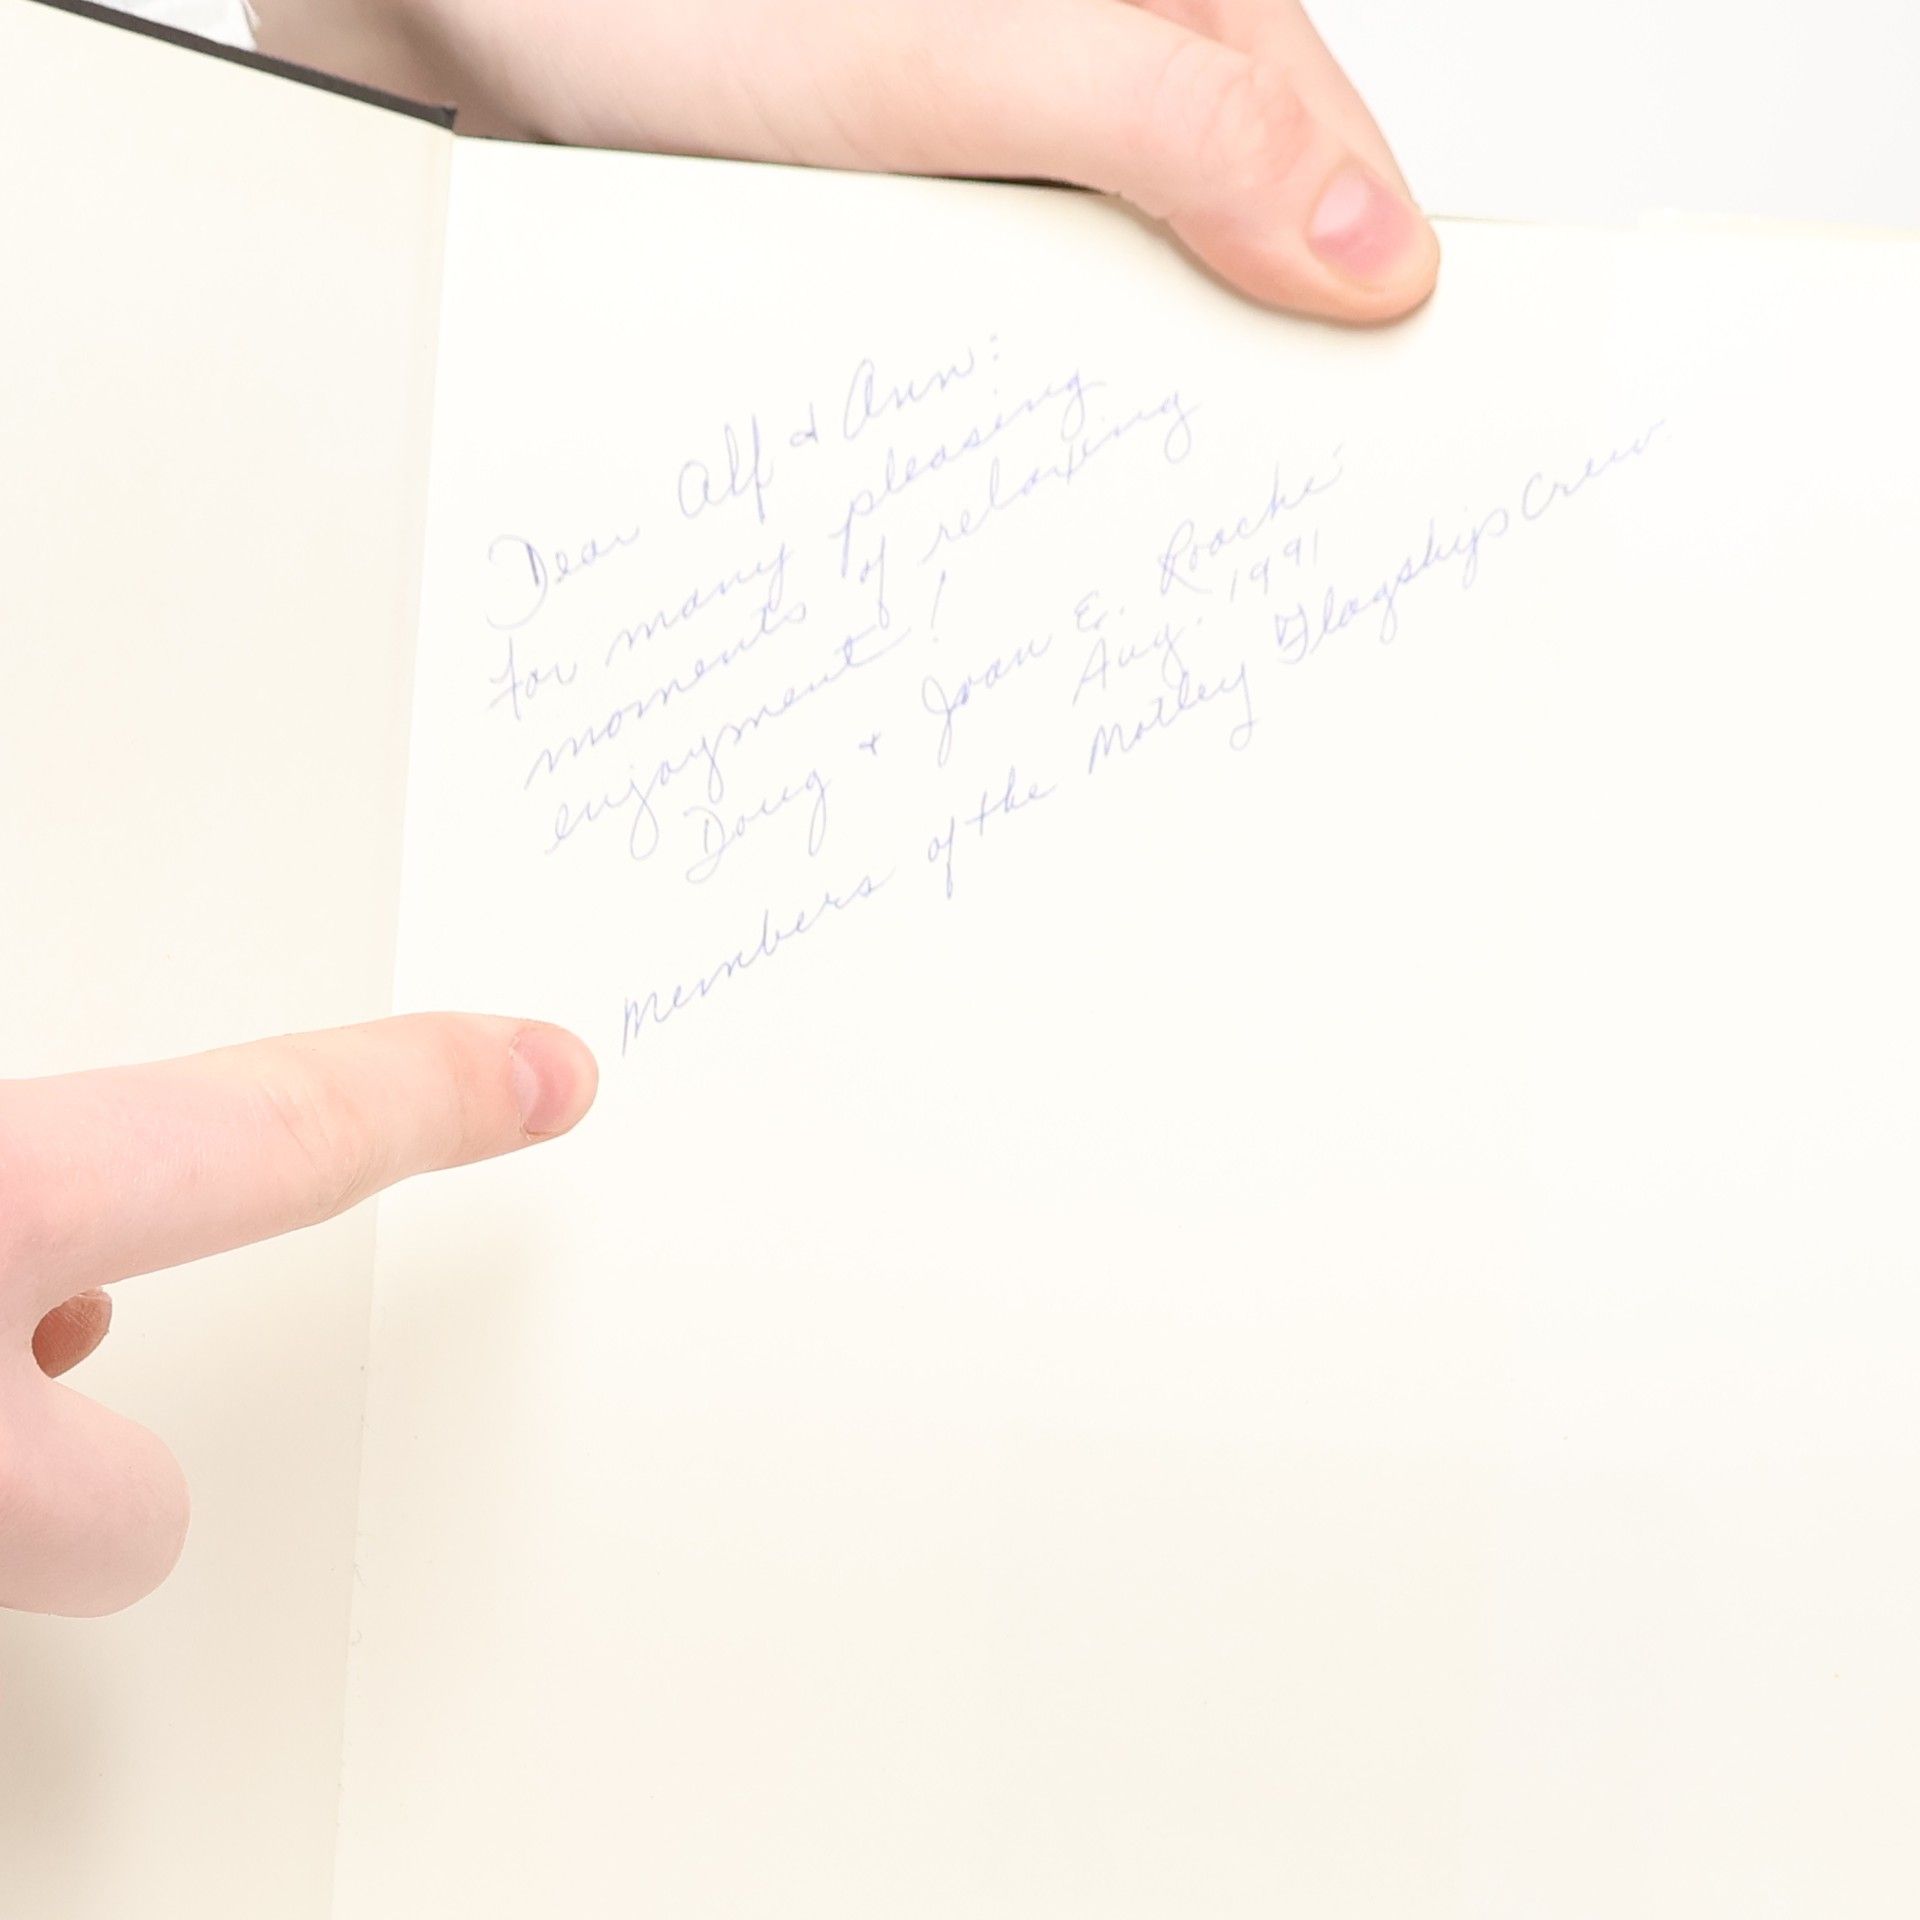 Dear Alf & Ann:
For many pleasing
moments of relaxing
enjoyment!
Doug & Joan E. Roaché
Aug. 1991
Members of the Motley Flagships Crew